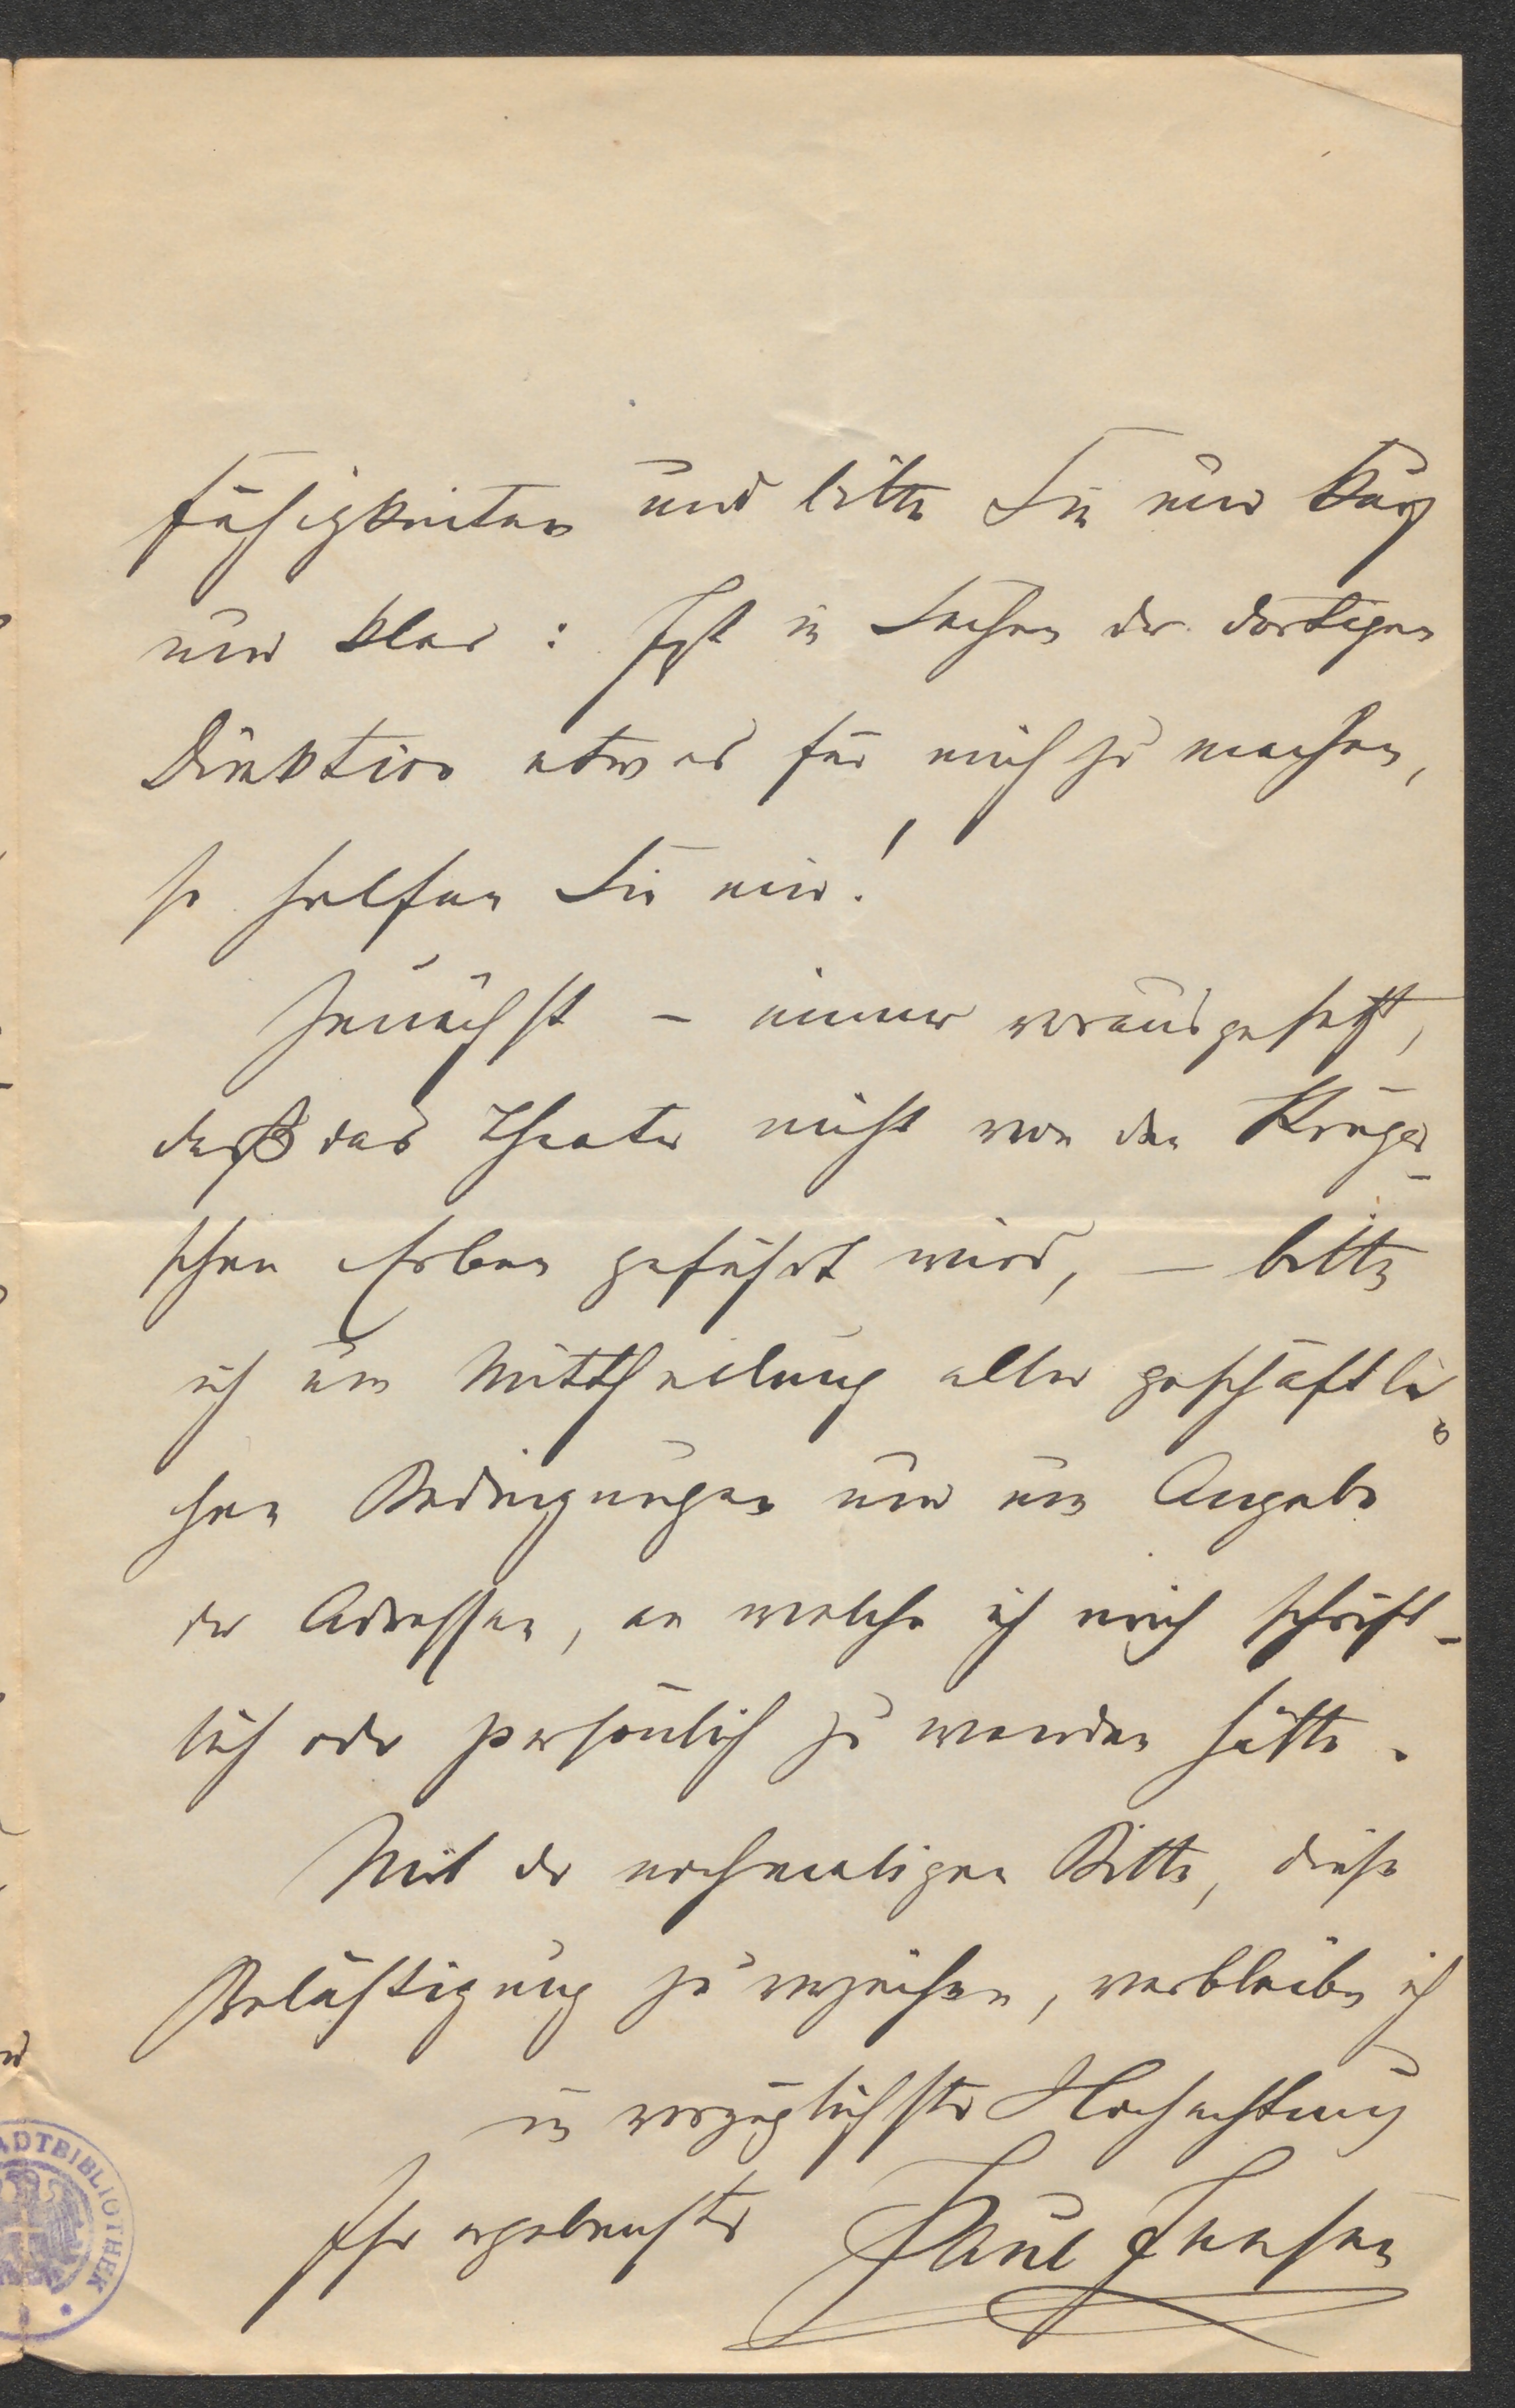 Fähigkeiten und bitte Sie nur kurz
und klar: Ist in Sachen der dortigen
Direktion etwas für mich zu machen,
so helfen Sie mir!
Zunächst – immer vorausgesetzt,
daß das Theater nicht von den Krüger-
schen Erben geführt wird, – bitte
ich um Mittheilung aller geschäftli-
chen Bedingungen und um Angabe
der Adressen, an welche ich mich schrift-
lich oder persönlich zu wenden hätte.
Mit der nochmaligen Bitte, diese
Belästigung zu verzeihen, verbleibe ich
in vorzüglichster Hochachtung
Ihr ergebenster Paul Jensen
STADTBIBLIOTHEK